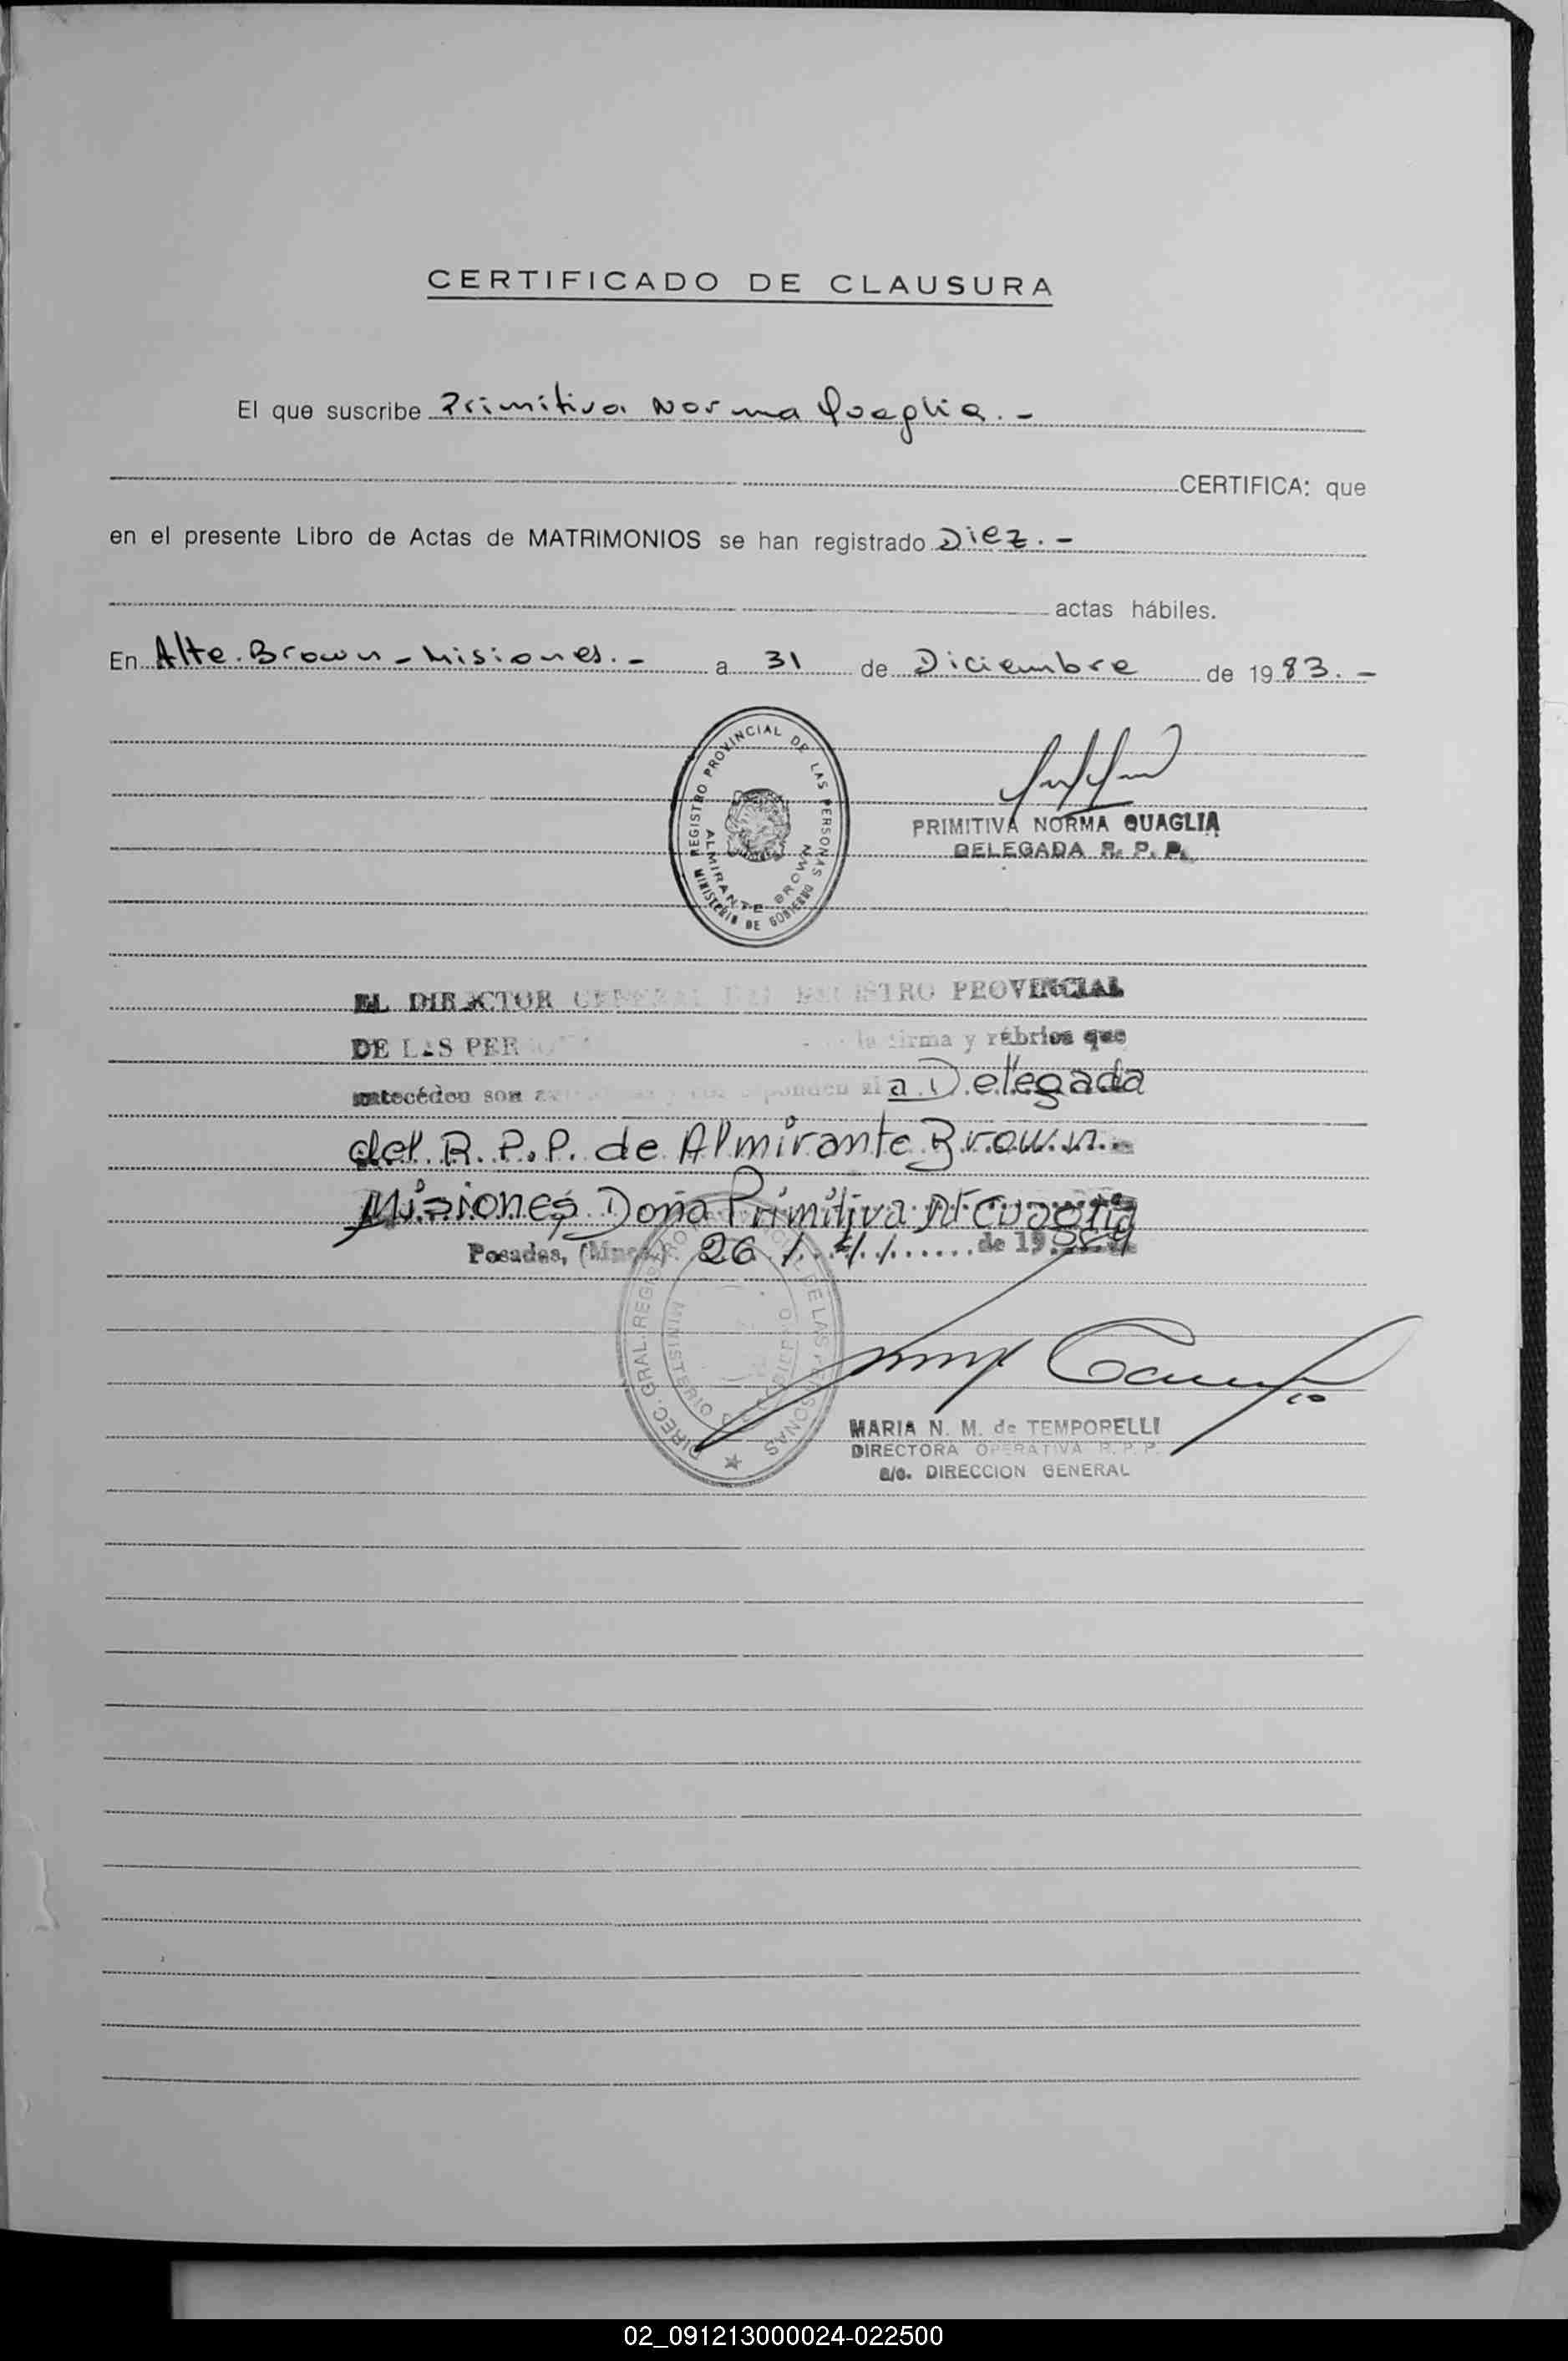 CERTIFICADO DE CLAUSURA
El que suscribe Primitiva Norma Quaglia.-
CERTIFICA: que
en el presente Libro de Actas de MATRIMONIOS se han registrado Diez.-
actas hábiles.
En Alte. Brown - Misiones.- a 31 de Diciembre de 1983.-
REGISTRO PROVINCIAL DE LAS PERSONAS
ALMIRANTE BROWN
MINISTERIO DE GOBIERNO
PRIMITIVA NORMA QUAGLIA
DELEGADA R. P. P.
EL DIRECTOR GENERAL DEL REGISTRO PROVINCIAL
DE LAS PER la firma y rúbrica que
anteceden son y corresponden al a Delegada
del R. P. P. de Almirante Brown.-
Misiones Doña Primitiva N.
Posadas, (Mnes.) 26 / 4 / de 19
DIREC. GRAL. REGISTRO PROVINCIAL DE LAS PERSONAS
MINISTERIO DE GOBIERNO
MARIA N. M. de TEMPORELLI
DIRECTORA OPERATIVA R. P. P.
a/c. DIRECCION GENERAL
02_091213000024-022500